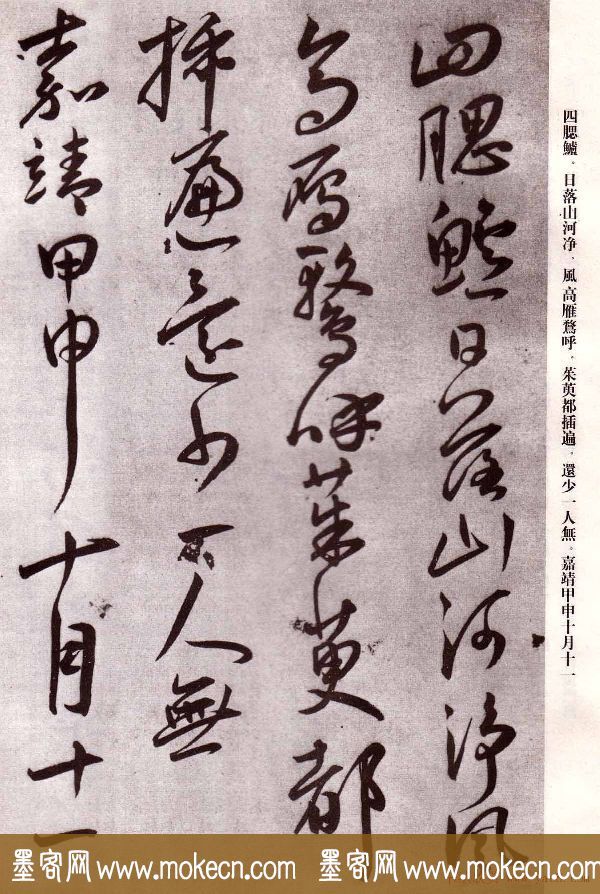 四腮鱸。日落山河净。風高雁鶩呼。茱萸都插遍。還少一人無。嘉靖甲申十月十一
四腮鱸日落山河净風
高雁鶩呼茱萸都
插遍還少一人無
嘉靖甲申十月十一
墨客网 www.mokecn.com 墨客网 www.mokecn.com